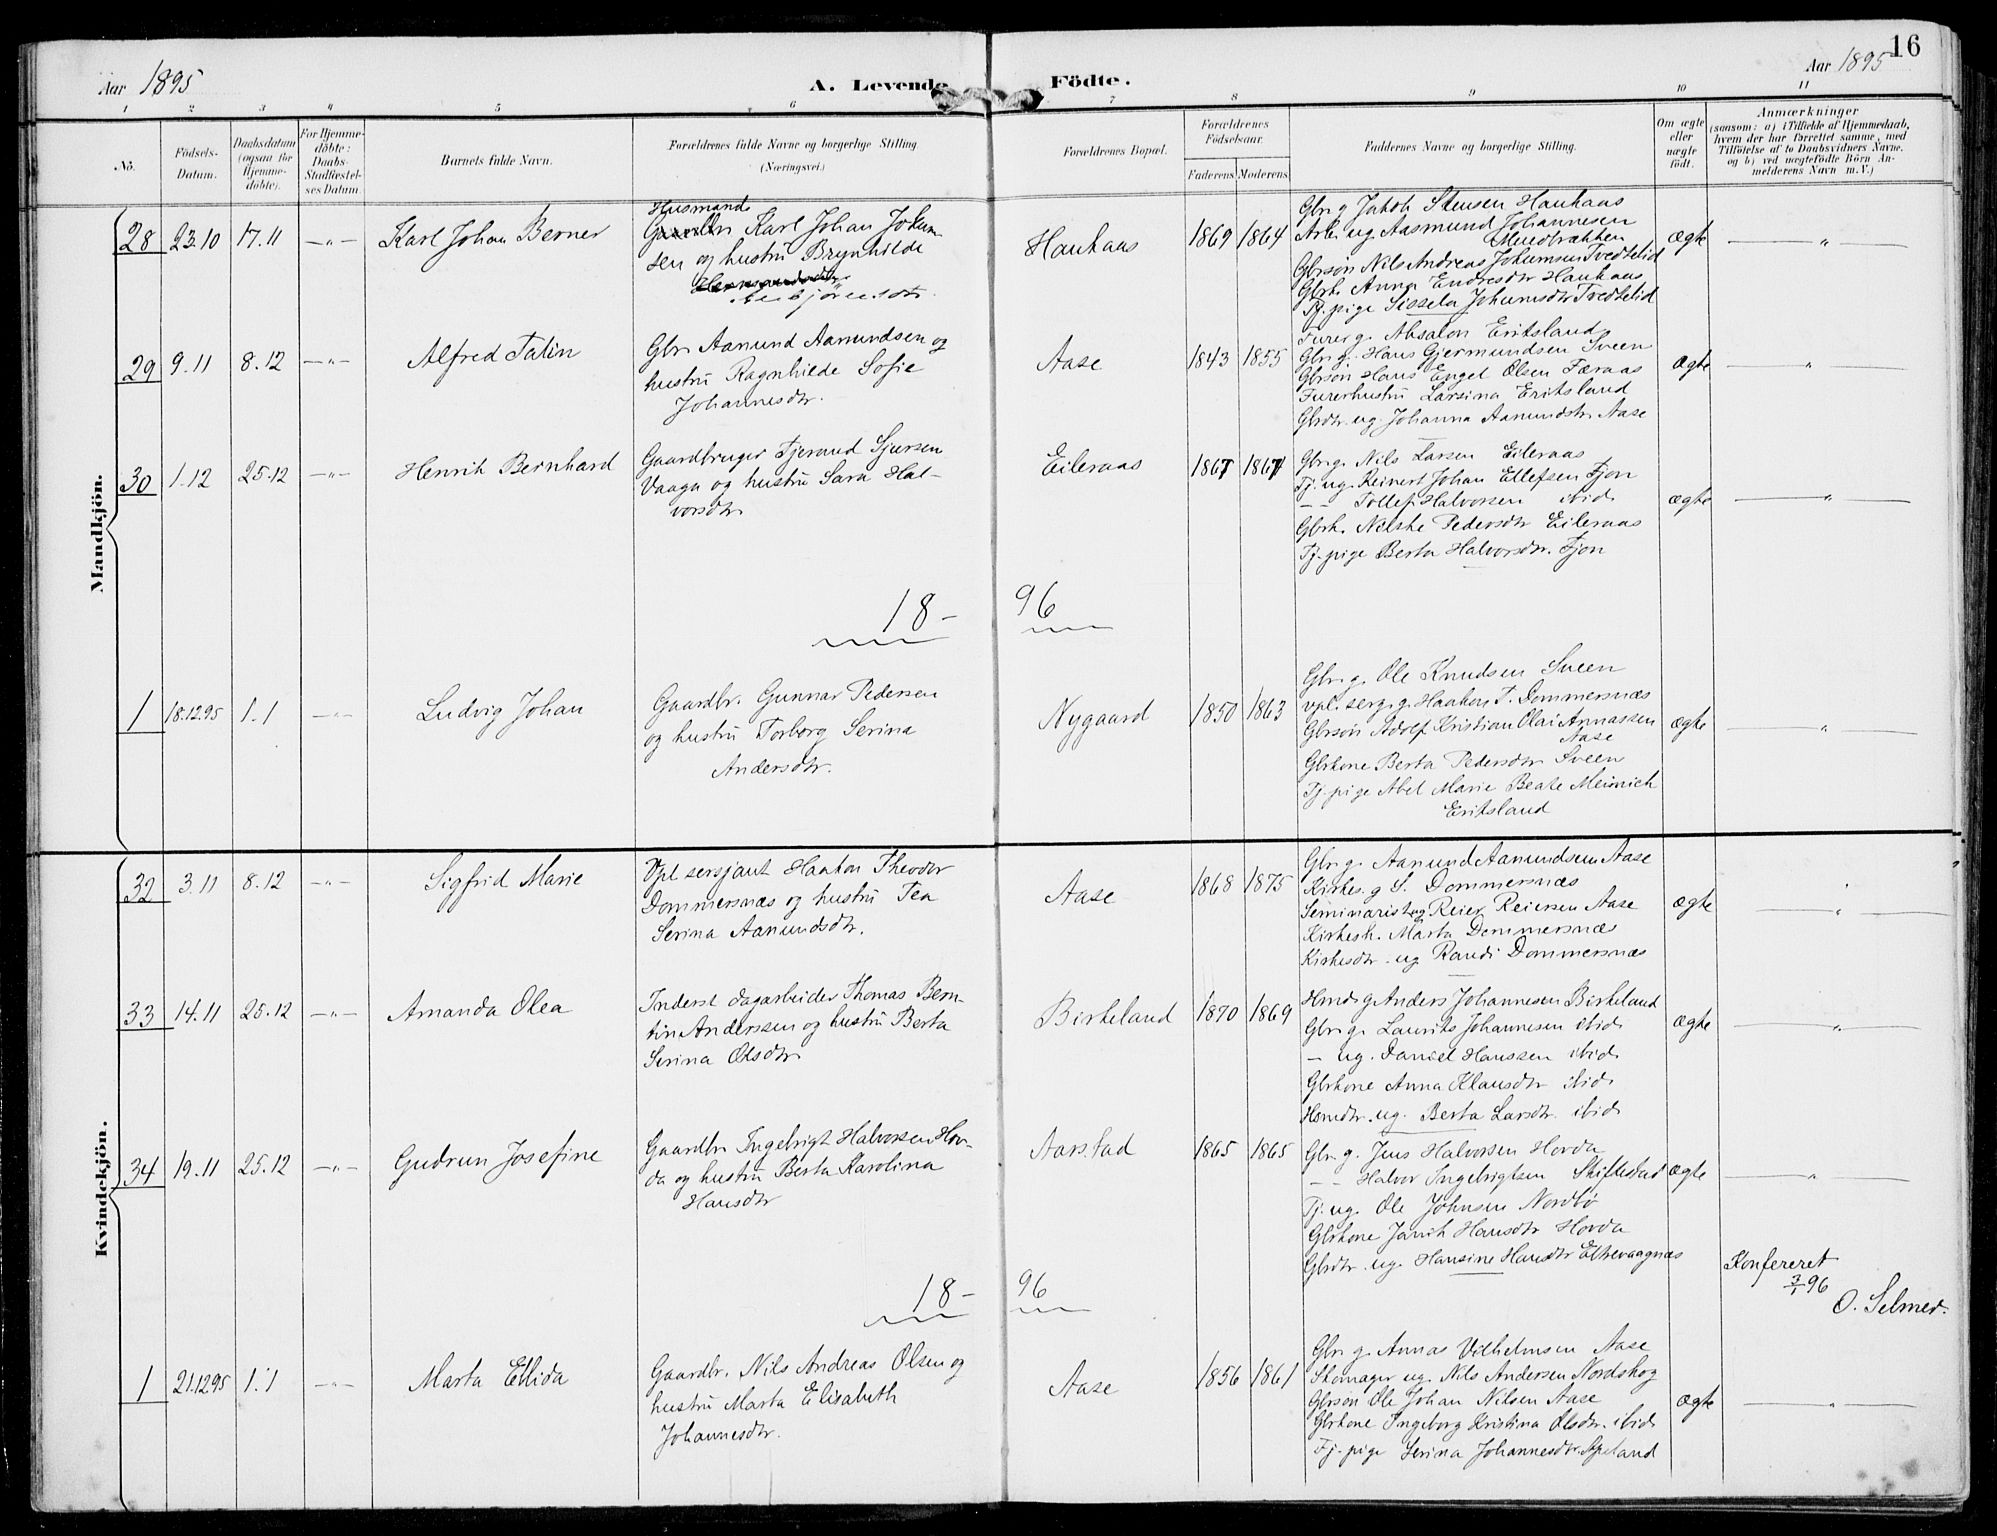 16
Aar 1895
A. Levende Födte.
Aar 1895
1 2 3 4 5 6 7 8 9 10 11
No.
Födsels-
Datum.
Daabsdatum
(ogsaa for
Hjemme-
döbte).
For Hjemme-
döbte:
Daabs-
Stadfæstel-
ses Datum.
Barnets fulde Navn.
Forældrenes fulde Navne og borgerlige Stilling.
(Næringsvei.)
Forældrenes Bopæl.
Forældrenes
Födselsaar.
Faderens Moderens
Faddernes Navne og borgerlige Stilling.
Om ægte
eller
uægte
födt.
Anmærkninger
(saasom: a) i Tilfælde af Hjemmedaab,
hvem der har forrettet samme, med
Tilföielse af to Daabsvidners Navne.
og b) ved uægtefödte Börn An-
melderens Navn m. V.)
Mandkjön.
28 23.10 17.11 -"- Karl Johan Berner
Husmand
Karl Johan Johan-
sen og hustru Brynhilde
Asbjörnsdtr.
Hauhaas 1869 1864
Gbr. g. Jakob Stensen Hauhaas
Arb. ug. Aasmund Johannesen
Mundbrækken
Gbrsön Nils Andreas Johansen Tvedtelid
Gbrk. Anna Endresdtr Hauhaas
Tj. pige Sissela Johansdtr Tvedtelid
ægte "
29 9.11 8.12 -"- Alfred Talin
Gbr. Aanund Aanundsen og
hustru Ragnhilde Sofie
Johannesdtr.
Aase 1843 1855
Furer g. Absalon Eritsland
Gbr. g. Hans Gjermundsen Sveen
Gbrsön Hans Engel Olsen Færaas
Furerhustru Larsina Eritsland
Gbrdtr. ug. Johanna Aanundsdtr Aase
ægte "
30 1.12 25.12 -"- Henrik Bernhard
Gaardbruger Tjerand Sjursen
Vaaga og hustru Sara Hal-
vorsdtr
Eileraas 1867 1867
Gbr. g. Nils Larsen Eileraas
Tj. ug. Reinert Johan Ellefsen Fjon
- - Tollef Halvorsen ibid.
Gbrk. Nilske Pedersdtr Eileraas
Tj. pige Berta Halvorsdtr. Fjon
ægte "
18- 96
1 18.12.95 1.1 -"- Ludvig Johan
Gaardbr. Gunnar Pedersen
og hustru Torborg Serina
Andersdtr.
Nygaard 1850 1863
Gbr. g. Ole Knudsen Sveen
vpl. serg. g. Haakon T. Dommersnæs
Gbrsön Adolf Kristian Olai Annassen
Aase
Gbrkone Berta Pedersdtr Sveen
Tj. pige Abel Marie Beate Meinich
Eritsland
ægte "
Kvindekjön.
32 3.11 8.12 -"- Sigfrid Marie
Vpl sersjant Haakon Theodor
Dommersnæs og hustru Tea
Serina Aanundsdtr.
Aase 1868 1875
Gbr. g. Aanund Aanundsen Aase
Kirkes. g S. Dommersnæs
Seminarist ug Reier Reiersen Aase
Kirkesh. Marta Dommersnæs
Kirkesdtr. ug Randi Dommersnæs
ægte "
33 14.11 25.12 -"- Amanda Olea
Inderst dagarbeider Thomas Bern-
tin Anderssen og hustru Berta
Serina Olsdtr
Birkeland 1870 1869
Hmd. g Anders Johannesen Birkeland
Gbr. g. Laurits Johannesen ibid.
- ug. Daniel Hanssen ibid.
Gbrkone Anna Klausdtr ibid.
Hsmdtr. ug. Berta Larsdtr. ibid.
ægte "
34 19.11 25.12 -"- Gudrun Josefine
Gaardbr Ingebrigt Halvorsen Hov-
da og hustru Berta Karolina
Hansdtr
Aarstad 1865 1865
Gbr. g. Jens Halvorsen Hovda
- - Halvor Ingebrigtsen Skiftestad
Tj. ug. Ole Johnsen Nordbö
Gbrkone Janik Hansdtr Hovda
Gbrdtr. ug. Hansine Hansdtr Eltrevaagnæs
ægte "
Konfereret
3/1 96
O. Selmer.
18- 96
1 21.12.95 1.1 -"- Marta Ellida
Gaardbr. Nils Andreas Olsen og
hustru Marta Elisabeth
Johannesdtr.
Aase 1856 1861
Gbr. g. Annas Vilhelmsen Aase
Skomager ug. Nils Andersen Nordskog
Gbrsön Ole Johan Nilsen Aase
Gbrkone Ingeborg Kristina Olsdtr. ibid.
Tj. pige Serina Johannesdtr. Apeland
ægte "